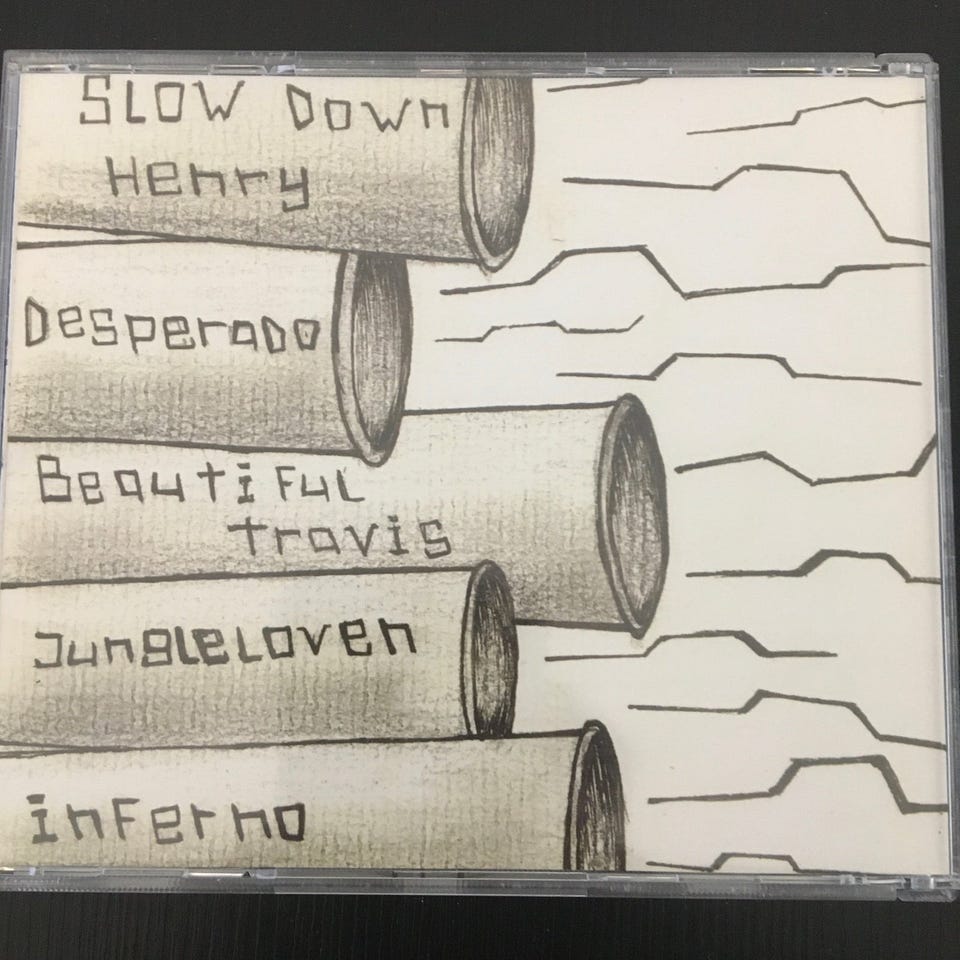 SLOW Down
Henry
Desperado
Beautiful
travis
Jungleloven
inferno